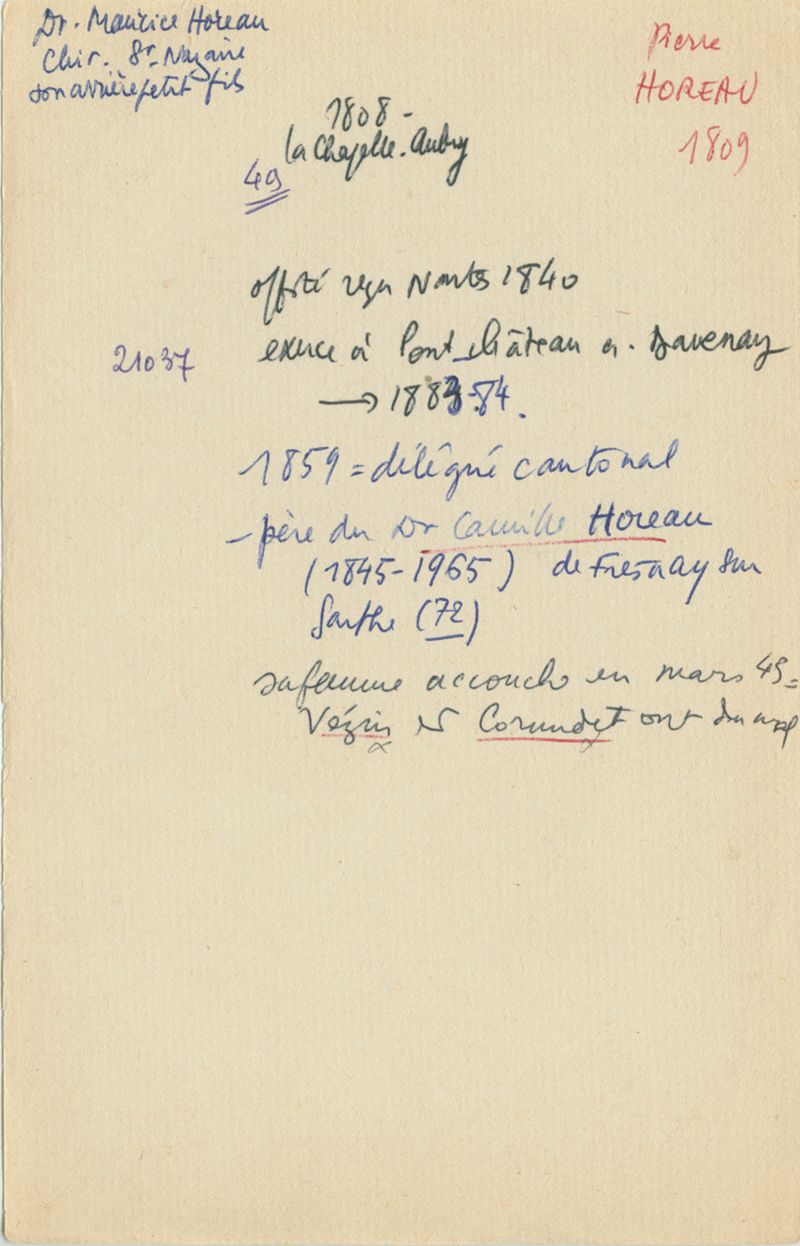 Dr. Maurice Horeau
Chir. St. Nazaire
son arrière petit fils
Pierre
HOREAU
1809
1808 -
la Chapelle-Aubry
49
offité reçu Nantes 1840
21037
exerce à Pont-château a. Savenay
→ 1883-84.
1859 = délégué cantonal
- père du Dr Camille Horeau
(1845-1965) de Fresnay sur
Sarthe (72)
sa femme accouche en mars 49 =
Vézin et Corundet ont du mal